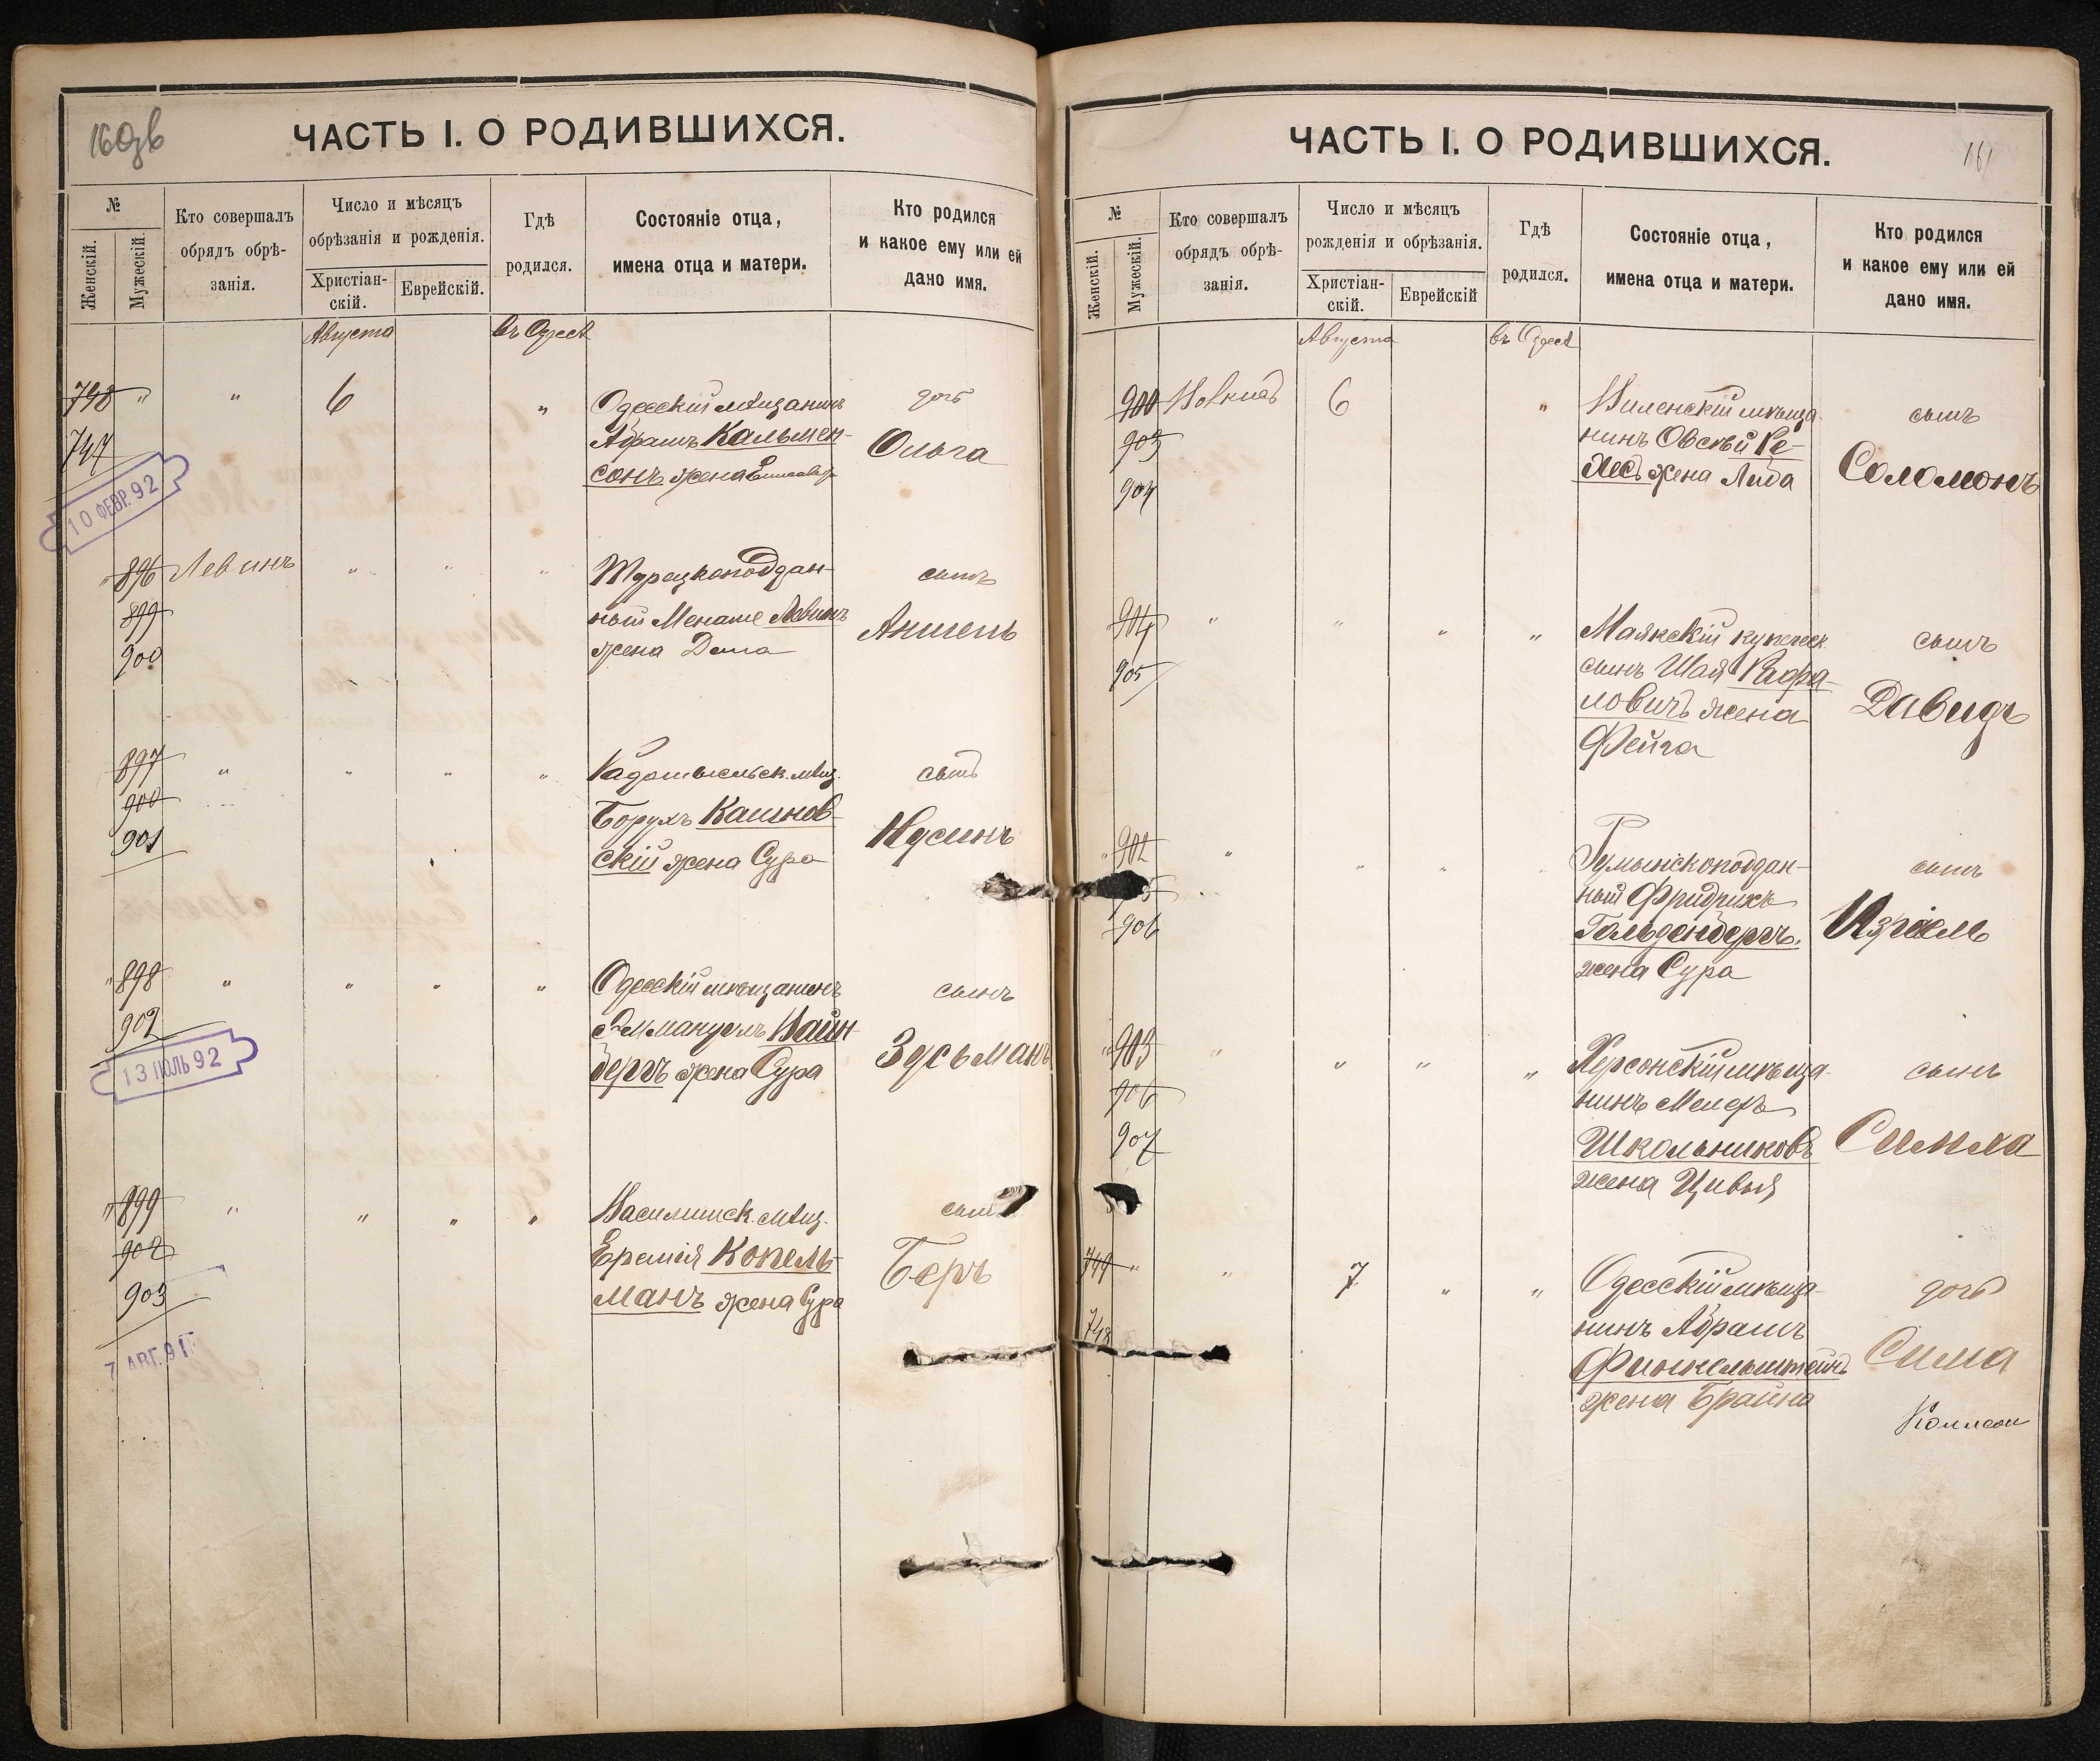 160 об
ЧАСТЬ I. О РОДИВШИХСЯ.
№
Женскій.
Мужескій.
Кто совершалъ
обрядъ обрѣ-
занія.
Число и мѣсяцъ
обрѣзанія и рожденія.
Христіан-
скій.
Еврейскій.
Гдѣ
родился.
Состояніе отца,
имена отца и матери.
Кто родился
и какое ему или ей
дано имя.
Августа
въ Одессѣ
748 " " 6 "
747
Одесскій мѣщанинъ
Абрамъ Кальмен-
сонъ жена
дочь
Ольга
10 ФЕВР. 92
" 896 Левинъ " " "
899
900
Турецкоподдан-
ный Менаше Левинъ
жена
сынъ
Аншель
897 " " " "
900
901
Радомысльск. мѣщ.
Борухъ Кашнов-
скій жена Сура
сынъ
Нусинъ
" 898 " " " "
902
Одесскій мѣщанинъ
Эммануелъ Вайн-
бергъ жена Сура
сынъ
Зусьманъ
13 ІЮЛЬ 92
" 899 " " " "
902
903
Василишск. мѣщ.
Еремія Копель-
манъ жена Сура
сынъ
Беръ
7 АВГ. 91
161
ЧАСТЬ I. О РОДИВШИХСЯ.
№
Женскій.
Мужескій.
Кто совершалъ
обрядъ обрѣ-
занія.
Число и мѣсяцъ
рожденія и обрѣзанія.
Христіан-
скій.
Еврейскій
Гдѣ
родился.
Состояніе отца,
имена отца и матери.
Кто родился
и какое ему или ей
дано имя.
Августа
въ Одессѣ
900 6 "
903
904
Виленскій мѣща-
нинъ Овсѣй Ре-
лесъ жена Либа
сынъ
Соломонъ
904 " " " "
905
Маякскій купеческ.
сынъ Шая Рафа-
ловичъ жена
Фейга
сынъ
Давидъ
" 902 " " "
906
Румынскоподдан-
ный Фридрихъ
Гольденбергъ.
жена Сура
сынъ
Израель
" 903 " " " "
906
907
Херсонскій мѣща-
нинъ Меиеръ
Школьниковъ
жена Цивья
сынъ
Симха
749 " " 7 " "
748
Одесскій мѣща-
нинъ Абрамъ
Финкельштейнъ
жена Брайна
дочь
Сима